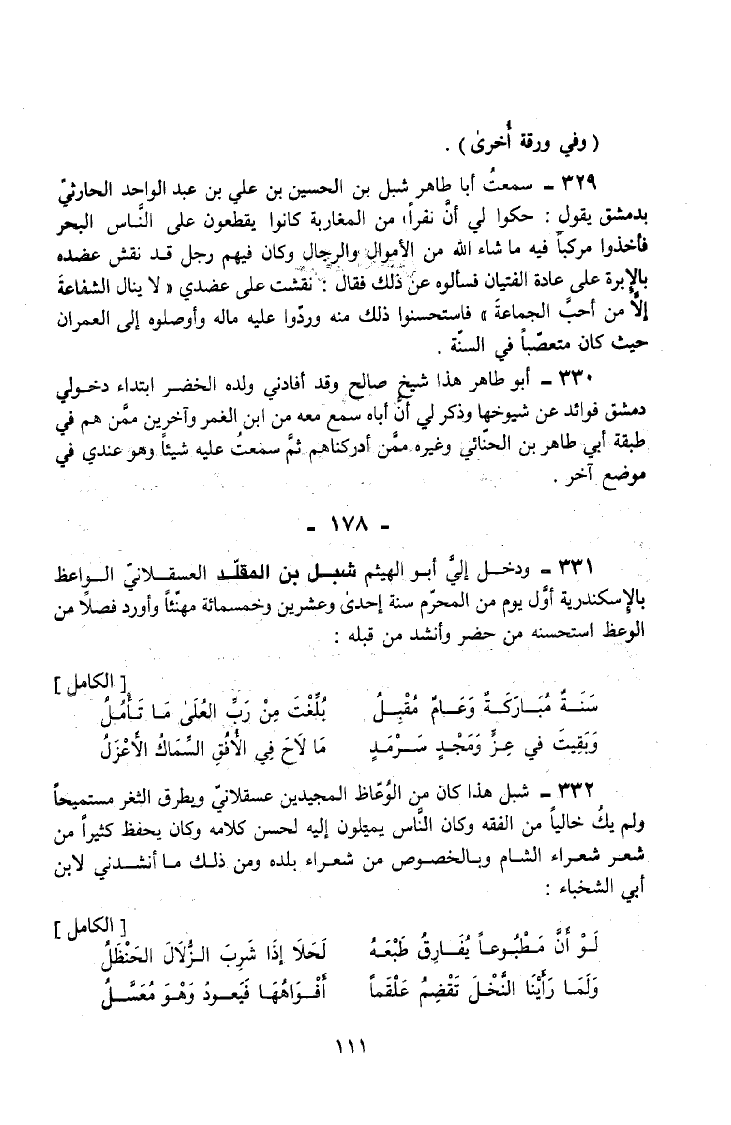 ( وفي ورقة أُخرىٰ ) .
٣٢٩ ـ سمعتُ أبا طاهر شبل بن الحسين بن علي بن عبد الواحد الحارثيّ
بدمشق يقول : حكوا لي أنَّ نفراً من المغاربة كانوا يقطعون على النَّاس البحر
فأخذوا مركباً فيه ما شاء الله من الأموال والرجال وكان فيهم رجل قد نقش عضده
بالإبرة على عادة الفتيان فسألوه عن ذلك فقال : نقشت على عضدي « لا ينال الشفاعةَ
إلاَّ من أحبَّ الجماعةَ » فاستحسنوا ذلك منه وردّوا عليه ماله وأوصلوه إلى العمران
حيث كان متعصّباً في السنّة .
٣٣٠ ـ أبو طاهر هذا شيخ صالح وقد أفادني ولده الخضر ابتداء دخولي
دمشق فوائد عن شيوخها وذكر لي أنَّ أباه سمع معه من ابن الغمر وآخرين ممَّن هم في
طبقة أبي طاهر بن الحنّائي وغيره ممَّن أدركناهم ثمَّ سمعتُ عليه شيئاً وهو عندي في
موضع آخر .
ـ ١٧٨ ـ
٣٣١ ـ ودخل إليَّ أبو الهيثم شبل بن المقلّد العسقلانيّ الواعظ
بالإسكندرية أوَّل يوم من المحرّم سنة إحدىٰ وعشرين وخمسمائة مهنّئاً وأورد فصلًا من
الوعظ استحسنه من حضر وأنشد من قبله :
[ الكامل ]
سَنَةٌ مُبَارَكَةٌ وَعَامٌ مُقْبِلُ بُلِّغْتَ مِنْ رَبِّ العُلَىٰ مَا تَأْمُلُ
وَبَقِيتَ في عِزٍّ وَمَجْدٍ سَرْمَدٍ مَا لَاحَ فِي الأُفُقِ السِّمَاكُ الأَعْزَلُ
٣٣٢ ـ شبل هذا كان من الوُعّاظ المجيدين عسقلانيّ ويطرق الثغر مستميحاً
ولم يكُ خالياً من الفقه وكان النَّاس يميّلون إليه لحسن كلامه وكان يحفظ كثيراً من
شعر شعراء الشام وبالخصوص من شعراء بلده ومن ذلك ما أنشدني لابن
أبي الشخباء :
[ الكامل ]
لَوْ أَنَّ مَطْبُوعاً يُفَارِقُ طَبْعَهُ لَحَلَا إذَا شَرِبَ الزُّلَالَ الحَنْظَلُ
وَلَمَا رَأَيْنَا النَّحْلَ تَقْضِمُ عَلْقَماً أَفْوَاهُهَا فَيَعودُ وَهْوَ مُعَسَّلُ
١١١